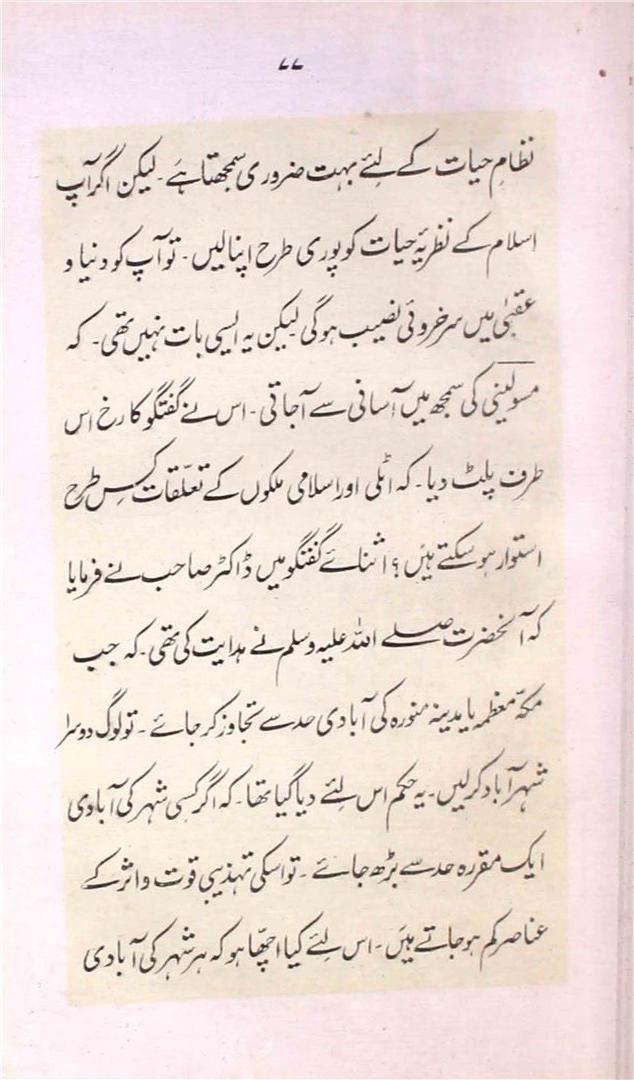 ۷۷
نظامِ حیات کے لئے بہت ضروری سمجھتا ہے۔ لیکن اگر آپ
اسلام کے نظریۂ حیات کو پوری طرح اپنا لیں۔ تو آپ کو دنیا و
عقبیٰ میں سرخروئی نصیب ہوگی لیکن یہ ایسی بات نہیں تھی۔ کہ
مسولینی کی سمجھ میں آسانی سے آجاتی۔ اس نے گفتگو کا رخ اس
طرف پلٹ دیا۔ کہ اٹلی اور اسلامی ملکوں کے تعلّقات کس طرح
استوار ہو سکتے ہیں؟ اثنائے گفتگو میں ڈاکٹر صاحب نے فرمایا
کہ آنحضرت صلے اللہ علیہ وسلم نے ہدایت کی تھی۔ کہ جب
مکہّ معظمہ یا مدینہ منورہ کی آبادی حد سے تجاوز کر جائے۔ تو لوگ دوسرا
شہر آباد کرلیں۔ یہ حکم اس لئے دیا گیا تھا۔ کہ اگر کسی شہر کی آبادی
ایک مقررہ حد سے بڑھ جائے۔ تو اسکی تہذیبی قوت و اثر کے
عناصر کم ہو جاتے ہیں۔ اس لئے کیا اچھّا ہو کہ ہر شہر کی آبادی